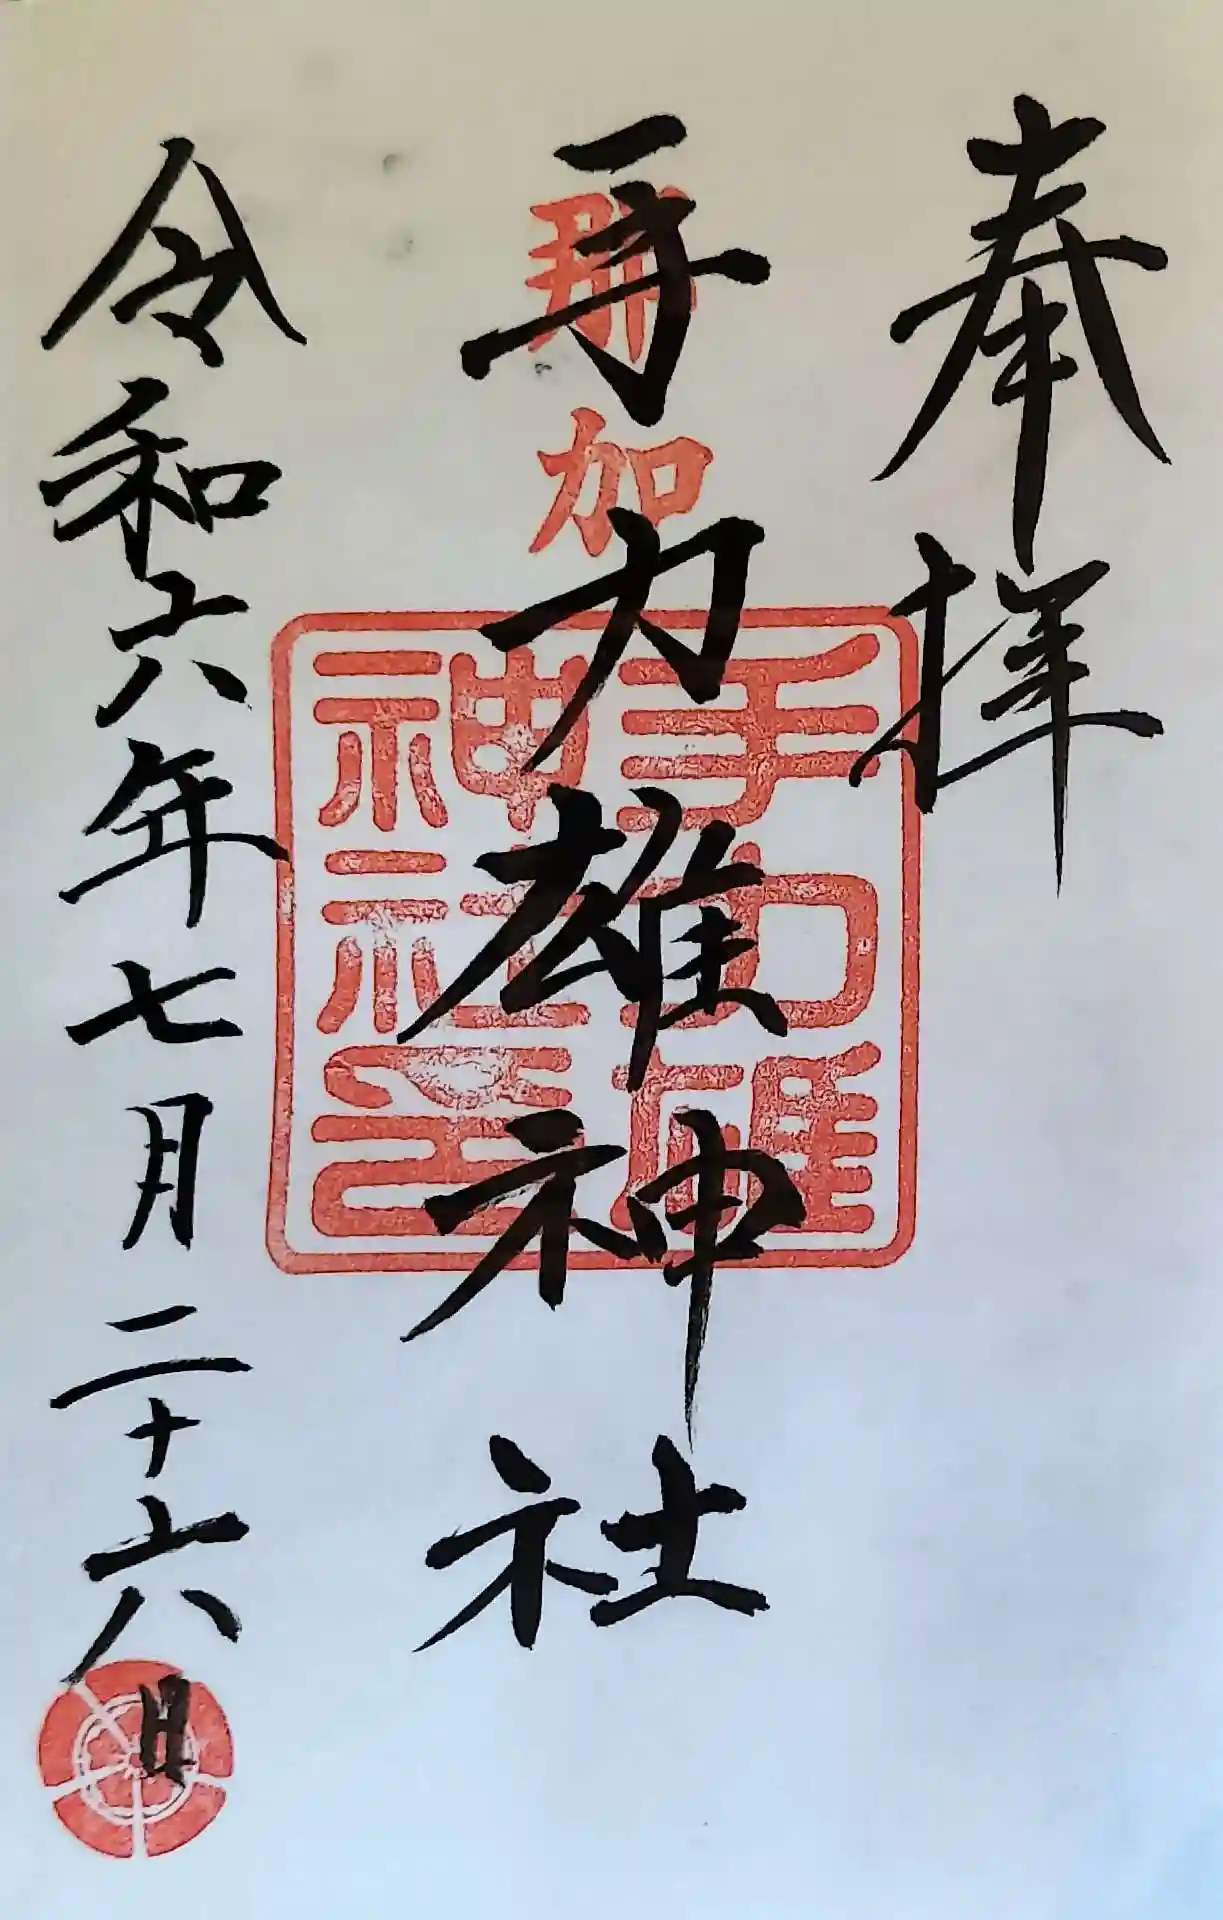 奉拝
那加
手力雄神社
手力雄
神社之印
令和六年七月二十六日